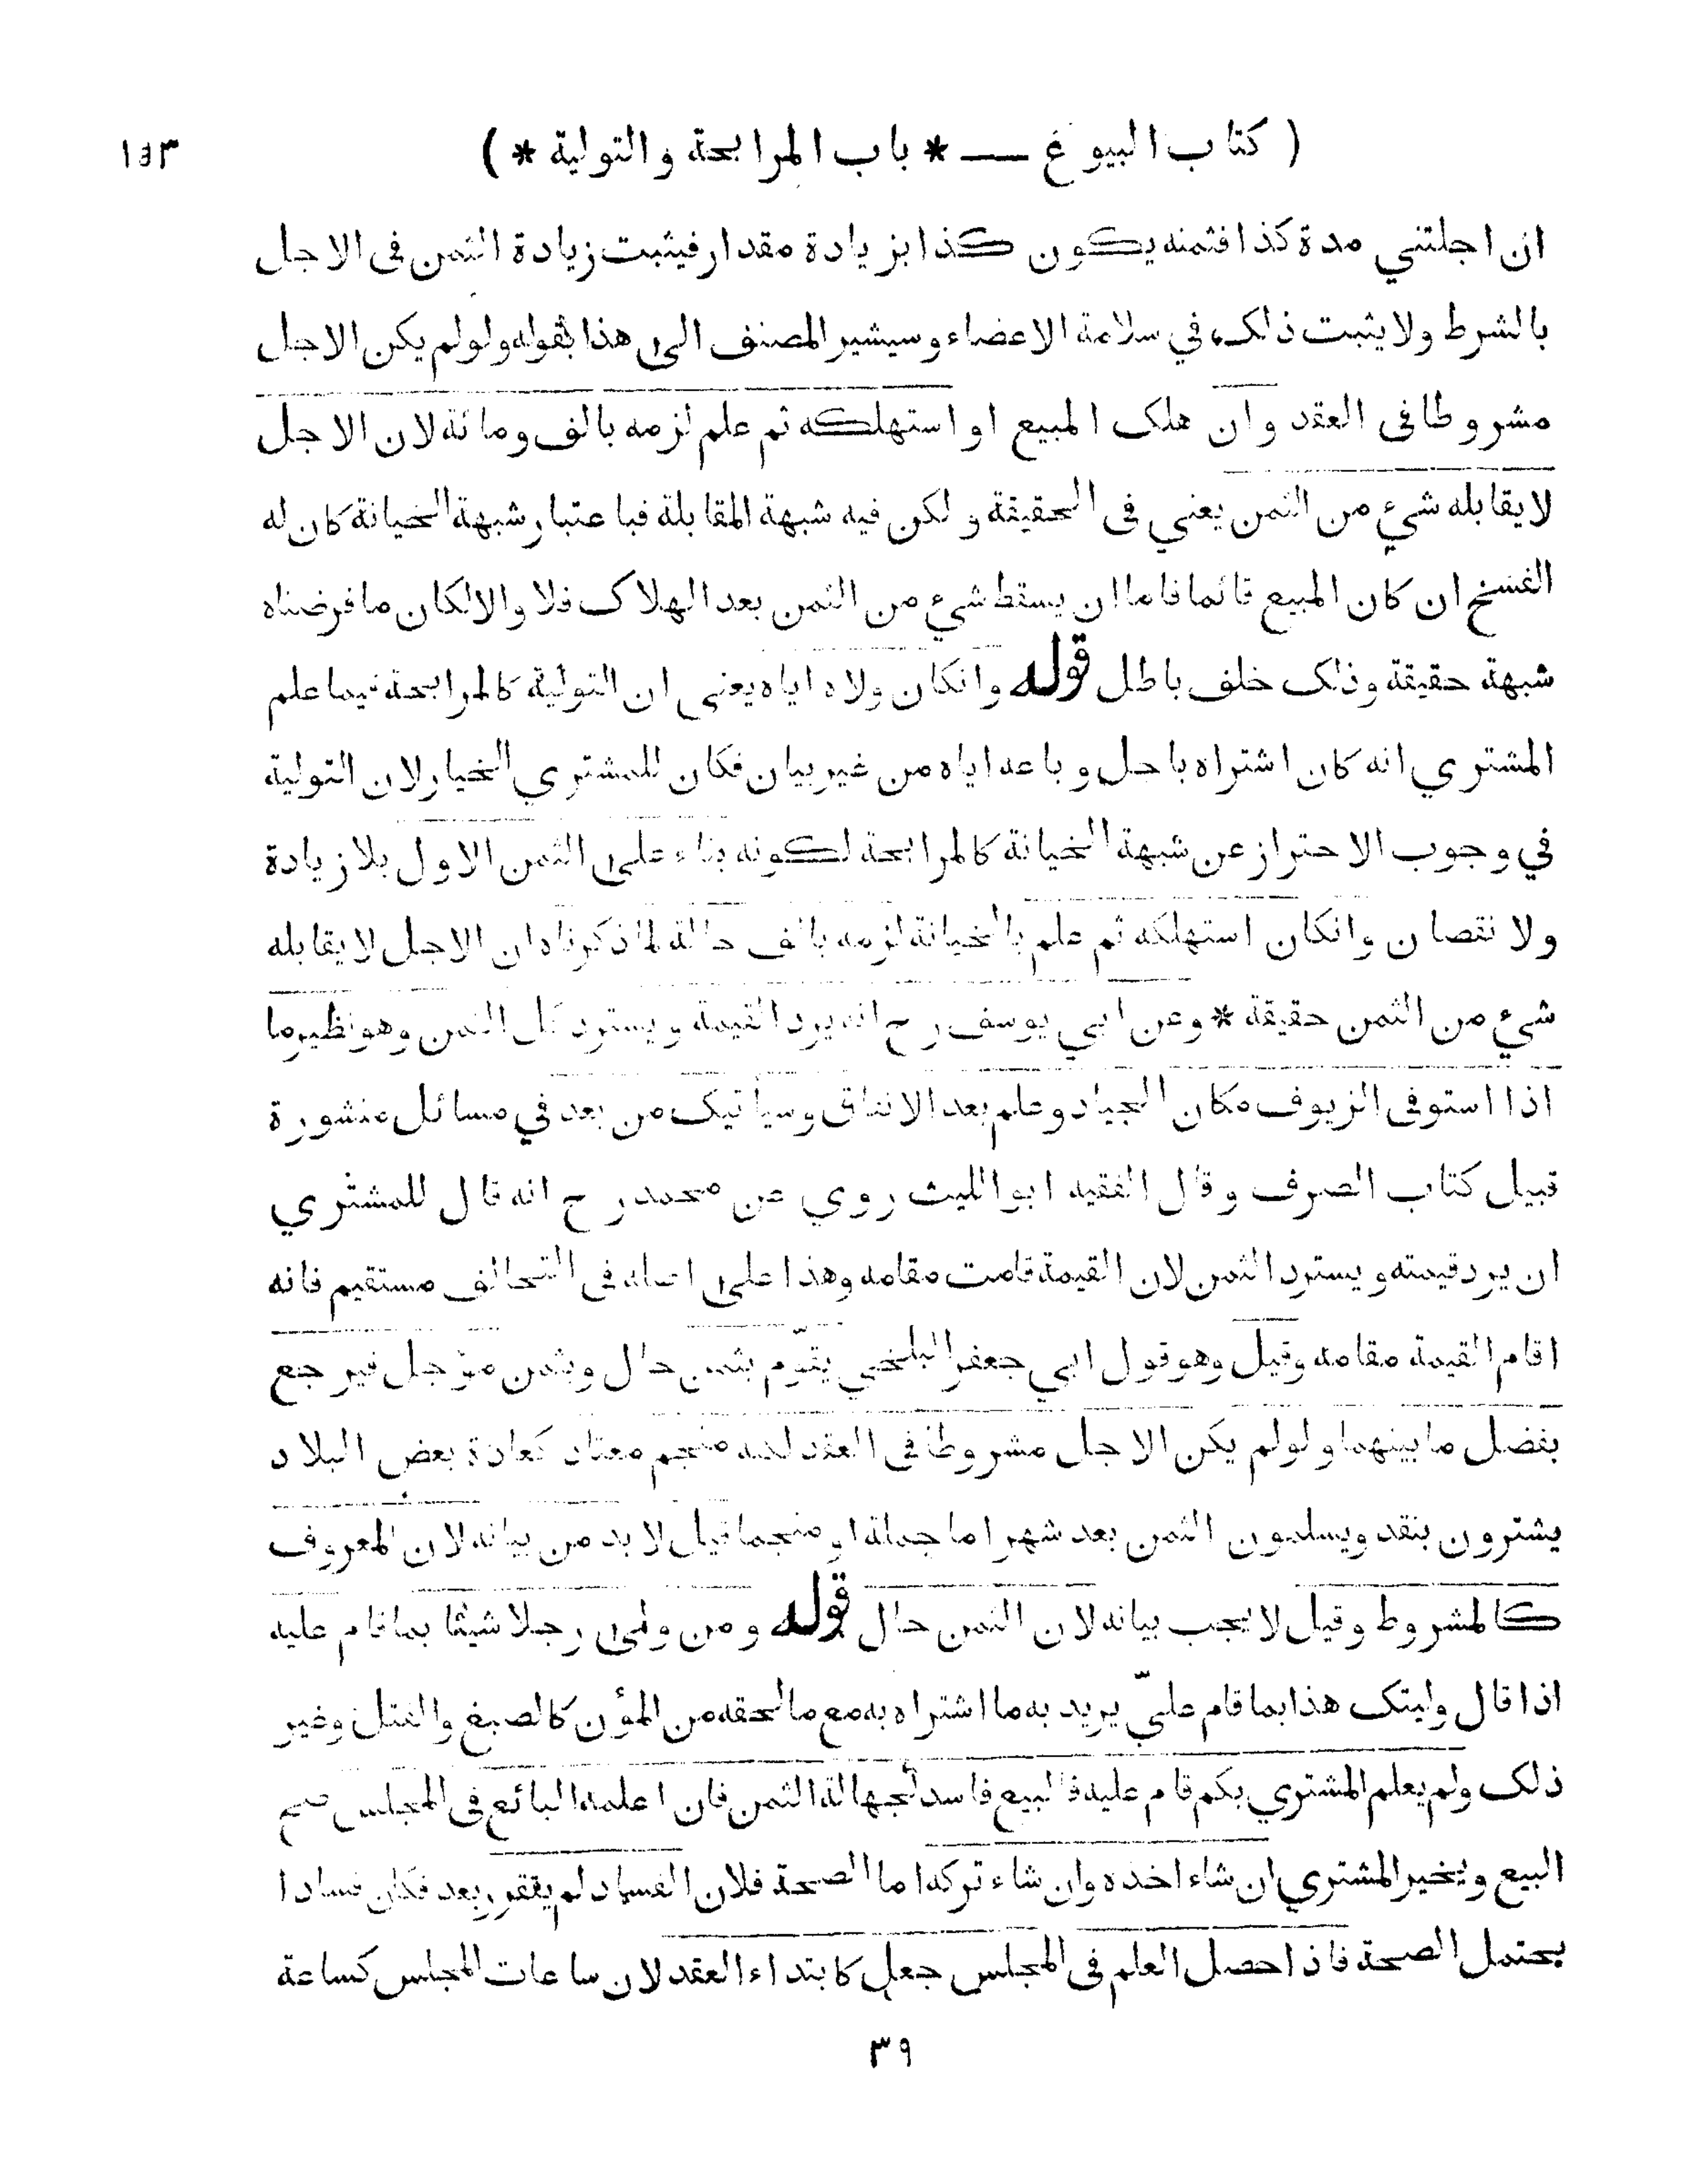 ( كتاب البيوع — * باب المرابحة والتولية * )
١٤٣
ان اجلتني مدة كذا فثمنه يكون كذا بزيادة مقدار فيثبت زيادة الثمن فى الاجل
بالشرط ولا يثبت ذلك في سلامة الاعضاء وسيشير المصنف الى هذا بقوله ولو لم يكن الاجل
مشروطا فى العقد وان هلك المبيع او استهلكه ثم علم لزمه بالف ومائة لان الاجل
لا يقابله شيء من الثمن يعني فى الحقيقة ولكن فيه شبهة المقابلة فباعتبار شبهة الخيانة كان له
الفسخ ان كان المبيع قائما فاما ان يسقط شيء من الثمن بعد الهلاك فلا والا لكان ما فرضناه
شبهة حقيقة وذلك خلف باطل قوله وانكان ولاه اياه يعني ان التولية كالمرابحة فيما علم
المشتري انه كان اشتراه باجل وباعه اياه من غير بيان فكان للمشتري الخيار لان التولية
في وجوب الاحتراز عن شبهة الخيانة كالمرابحة لكونه بناء على الثمن الاول بلا زيادة
ولا نقصان وانكان استهلكه ثم علم بالخيانة لزمه بالف حالة لما ذكرناه ان الاجل لا يقابله
شيء من الثمن حقيقة * وعن ابي يوسف رح انه يرد القيمة ويسترد كل الثمن وهو نظير ما
اذا استوفى الزيوف مكان الجياد وعلم بعد الانفاق وسيأتيك من بعد في مسائل منشورة
قبيل كتاب الصرف وقال الفقيه ابو الليث روي عن محمد رح انه قال للمشتري
ان يرد قيمته ويسترد الثمن لان القيمة قامت مقامه وهذا على اصله فى التحالف مستقيم فانه
اقام القيمة مقامه وقيل وهو قول ابي جعفر البلخي يقوّم بثمن حال وبثمن مؤجل فيرجع
بفضل ما بينهما ولو لم يكن الاجل مشروطا فى العقد لكنه منجم معتاد كعادة بعض البلاد
يشترون بنقد ويسلمون الثمن بعد شهر اما جملة او منجما قيل لا بد من بيانه لان المعروف
كالمشروط وقيل لا يجب بيانه لان الثمن حال قوله ومن ولى رجلا شيئا بما قام عليه
اذا قال وليتك هذا بما قام عليّ يريد به ما اشتراه به مع ما لحقه من المؤن كالصبغ والفتل وغير
ذلك ولم يعلم المشتري بكم قام عليه فالبيع فاسد لجهالة الثمن فان اعلمه البائع فى المجلس صح
البيع ويخير المشتري ان شاء اخذه وان شاء تركه اما الصحة فلان الفساد لم يتقرر بعد فكان فسادا
يحتمل الصحة فاذا حصل العلم فى المجلس جعل كابتداء العقد لان ساعات المجلس كساعة
٣٩